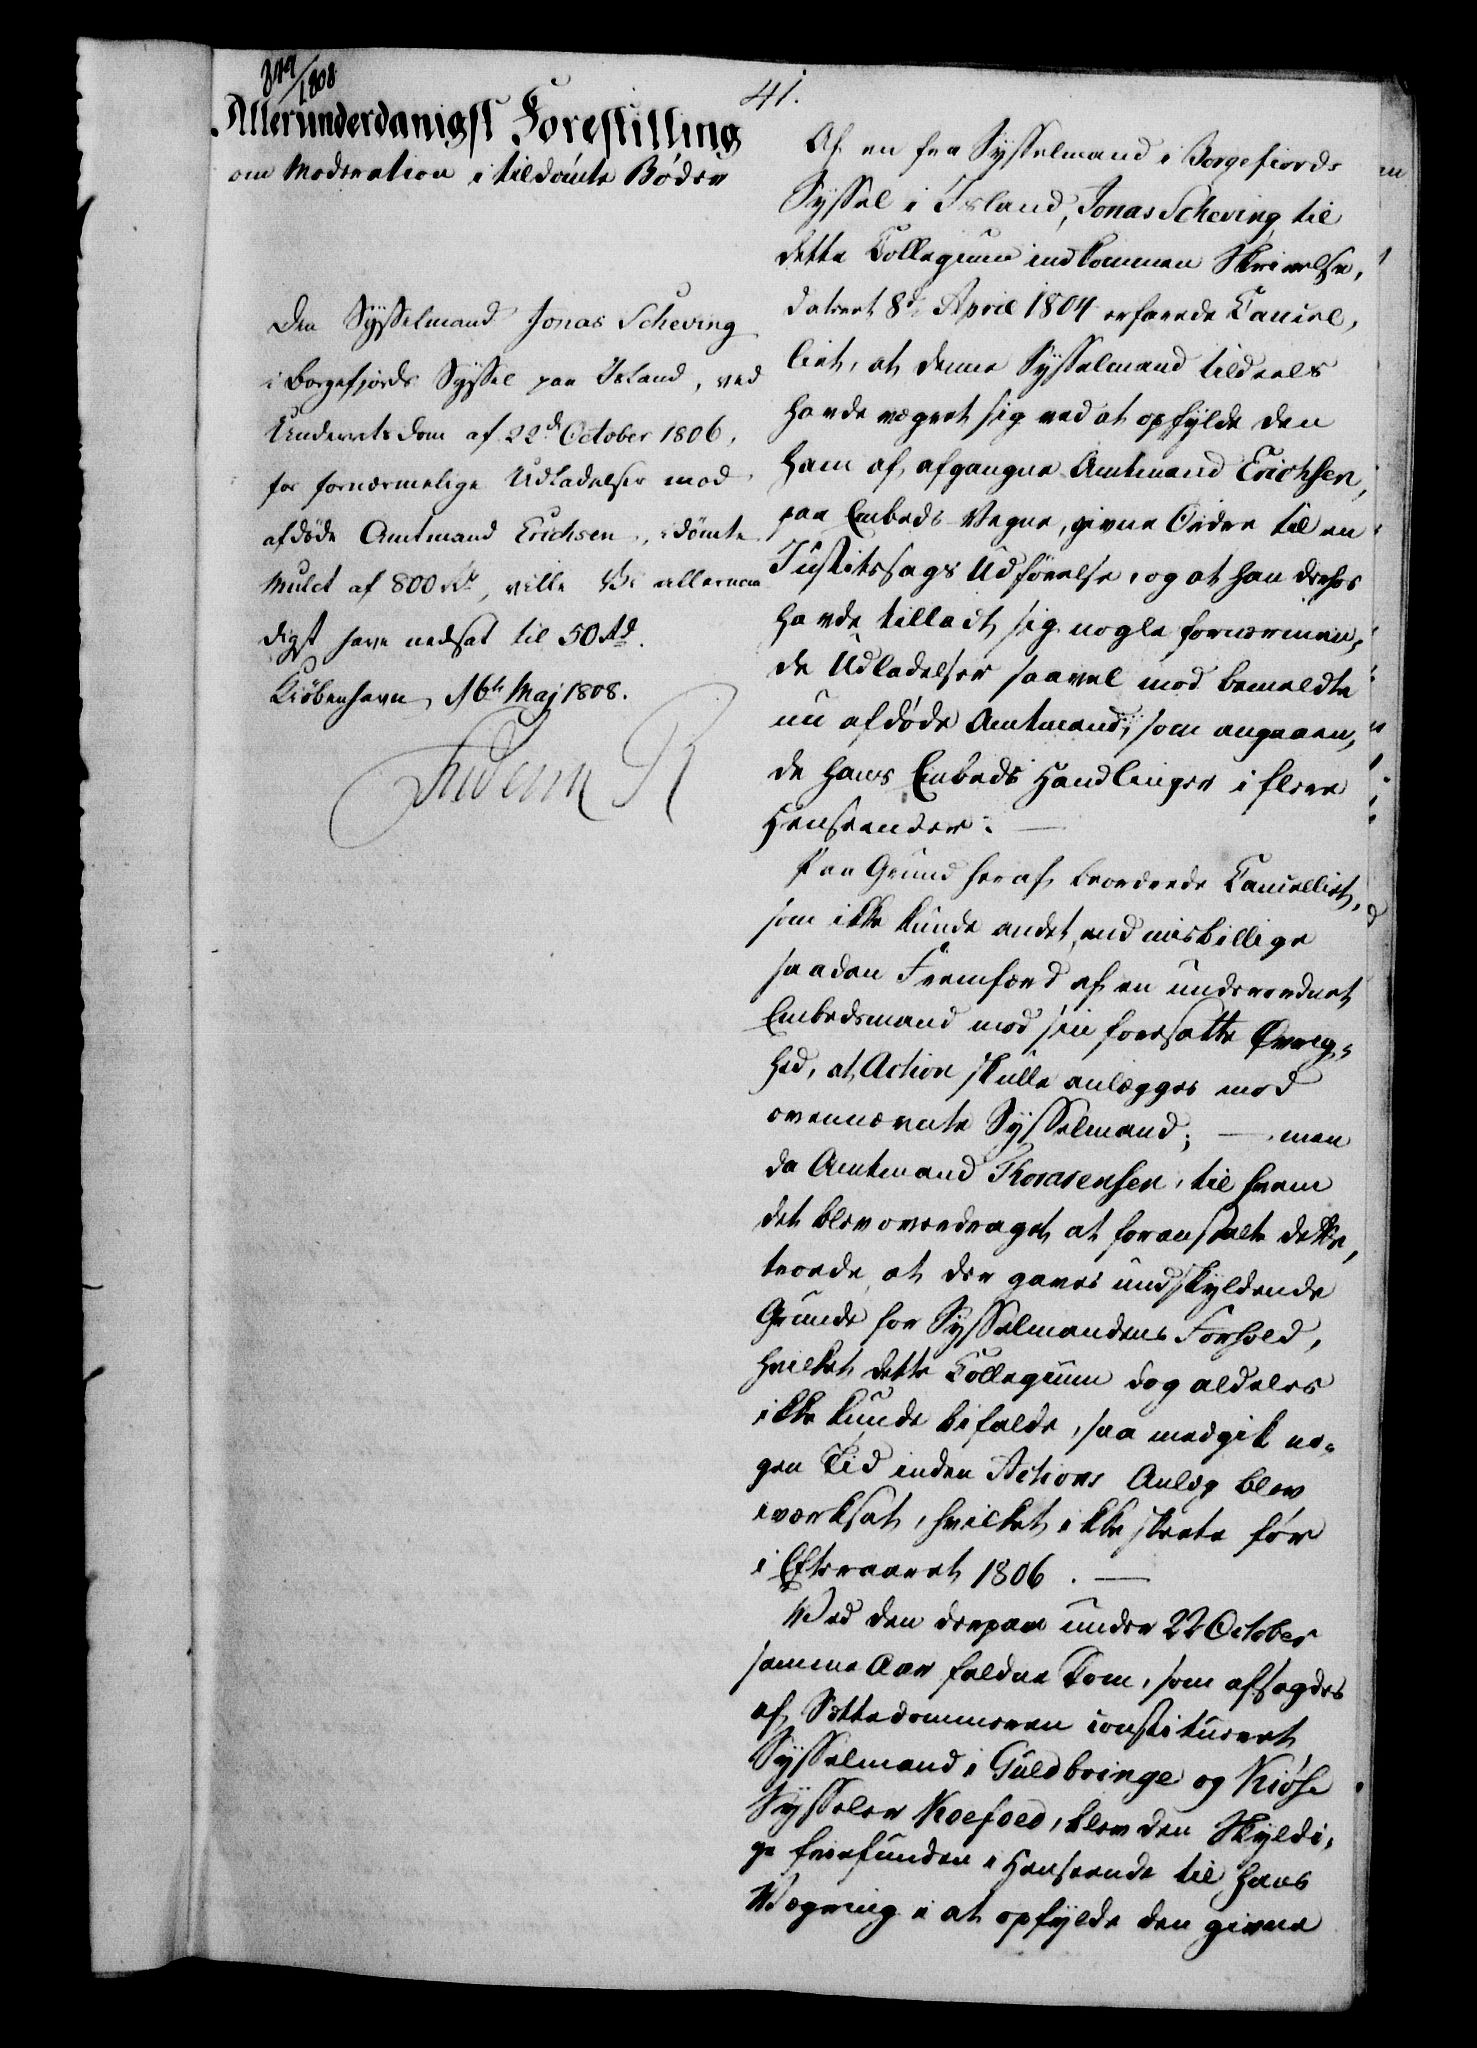 849/1808
41.
Allerunderdanigst Forestilling
om Moderation i tildømte Bøder
Den Sysselmand Jonas Scheving
i Borgefjords Syssel paa Island, ved
Underretsdom af 22d October 1806,
for fornærmelige Udladelser mod
afdøde Amtmand Erichsen, idømte
Mulct af 800 Rd, ville Vi allernaa
digst have nedsat til 50 Rd.
Kiøbenhavn, 16th Maj 1808.
Frederik R
Af en fra Sysselmand i Borgefiords
Syssel i Island, Jonas Scheving til
dette Collegium indkommen Skrivelse,
dateret 8d April 1804 erfarede Cancel,
liet, at denne Sysselmand tildeels
havde vægret sig ved at opfylde den
ham af afgangne Amtmand Erichsen,
paa Embeds Vegne, givne Ordre til en
Justitssags Udførelse, og at han derhos
havde tilladt sig nogle fornærmen,
de Udladelser saavel mod bemeldte
nu afdøde Amtmand, som angaaen,
de hans Embeds Handlinger i flere
Henseender. —
Paa Grund heraf beordrede Cancelliet,
som ikke kunde andet end misbillige
saadan Fremfærd af en underordnet
Embedsmand mod sin foresatte Øvrig,
hed, at Action skulle anlægges mod
ovennævnte Sysselmand; — men
da Amtmand Thorarensen, til hvem
det blev overdraget at foranstalte dette,
troede, at der gaves undskyldende
Grunde for Sysselmandens Forhold,
hvilket dette Collegium dog aldeles
ikke kunde bifalde, saa medgik no,
gen Tid inden Actions Anlæg blev
iværksat, hvilket ikke skete før
i Efteraaret 1806. —
Ved den derpaa under 22 October
samme Aar faldne Dom, som afsagdes
af Sættedommeren constitueret
Sysselmand i Guldbringe og Kiøse
Sysseler Koefoed, blev den Skyldi,
ge friefunden i Henseende til hans
Vægring i at opfylde den givne